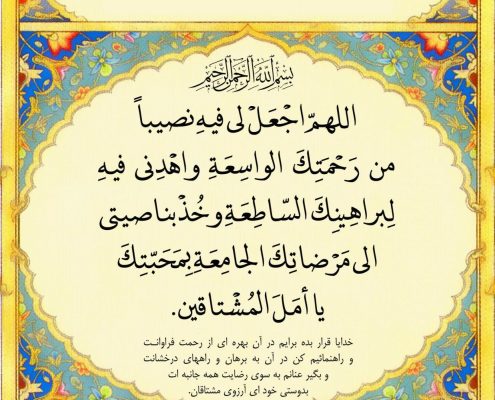 بسم الله الرحمن الرحیم
اللهمّ اجْعَلْ لی فیهِ نصیباً
من رَحْمَتِكَ الواسِعَةِ واهْدِنی فیهِ
لِبراهِینِكَ السّاطِعَةِ وخُذْ بناصیتی
الی مَرْضاتِكَ الجامعَةِ بِمَحَبّتِكَ
یا أمَلَ المُشْتاقین.
خدایا قرار بده برایم در آن بهره ای از رحمت فراوانت
و راهنمائیم کن در آن به برهان و راههای درخشانت
و بگیر عنانم به سوی رضایت همه جانبه ات
بدوستی خود ای آرزوی مشتاقان.